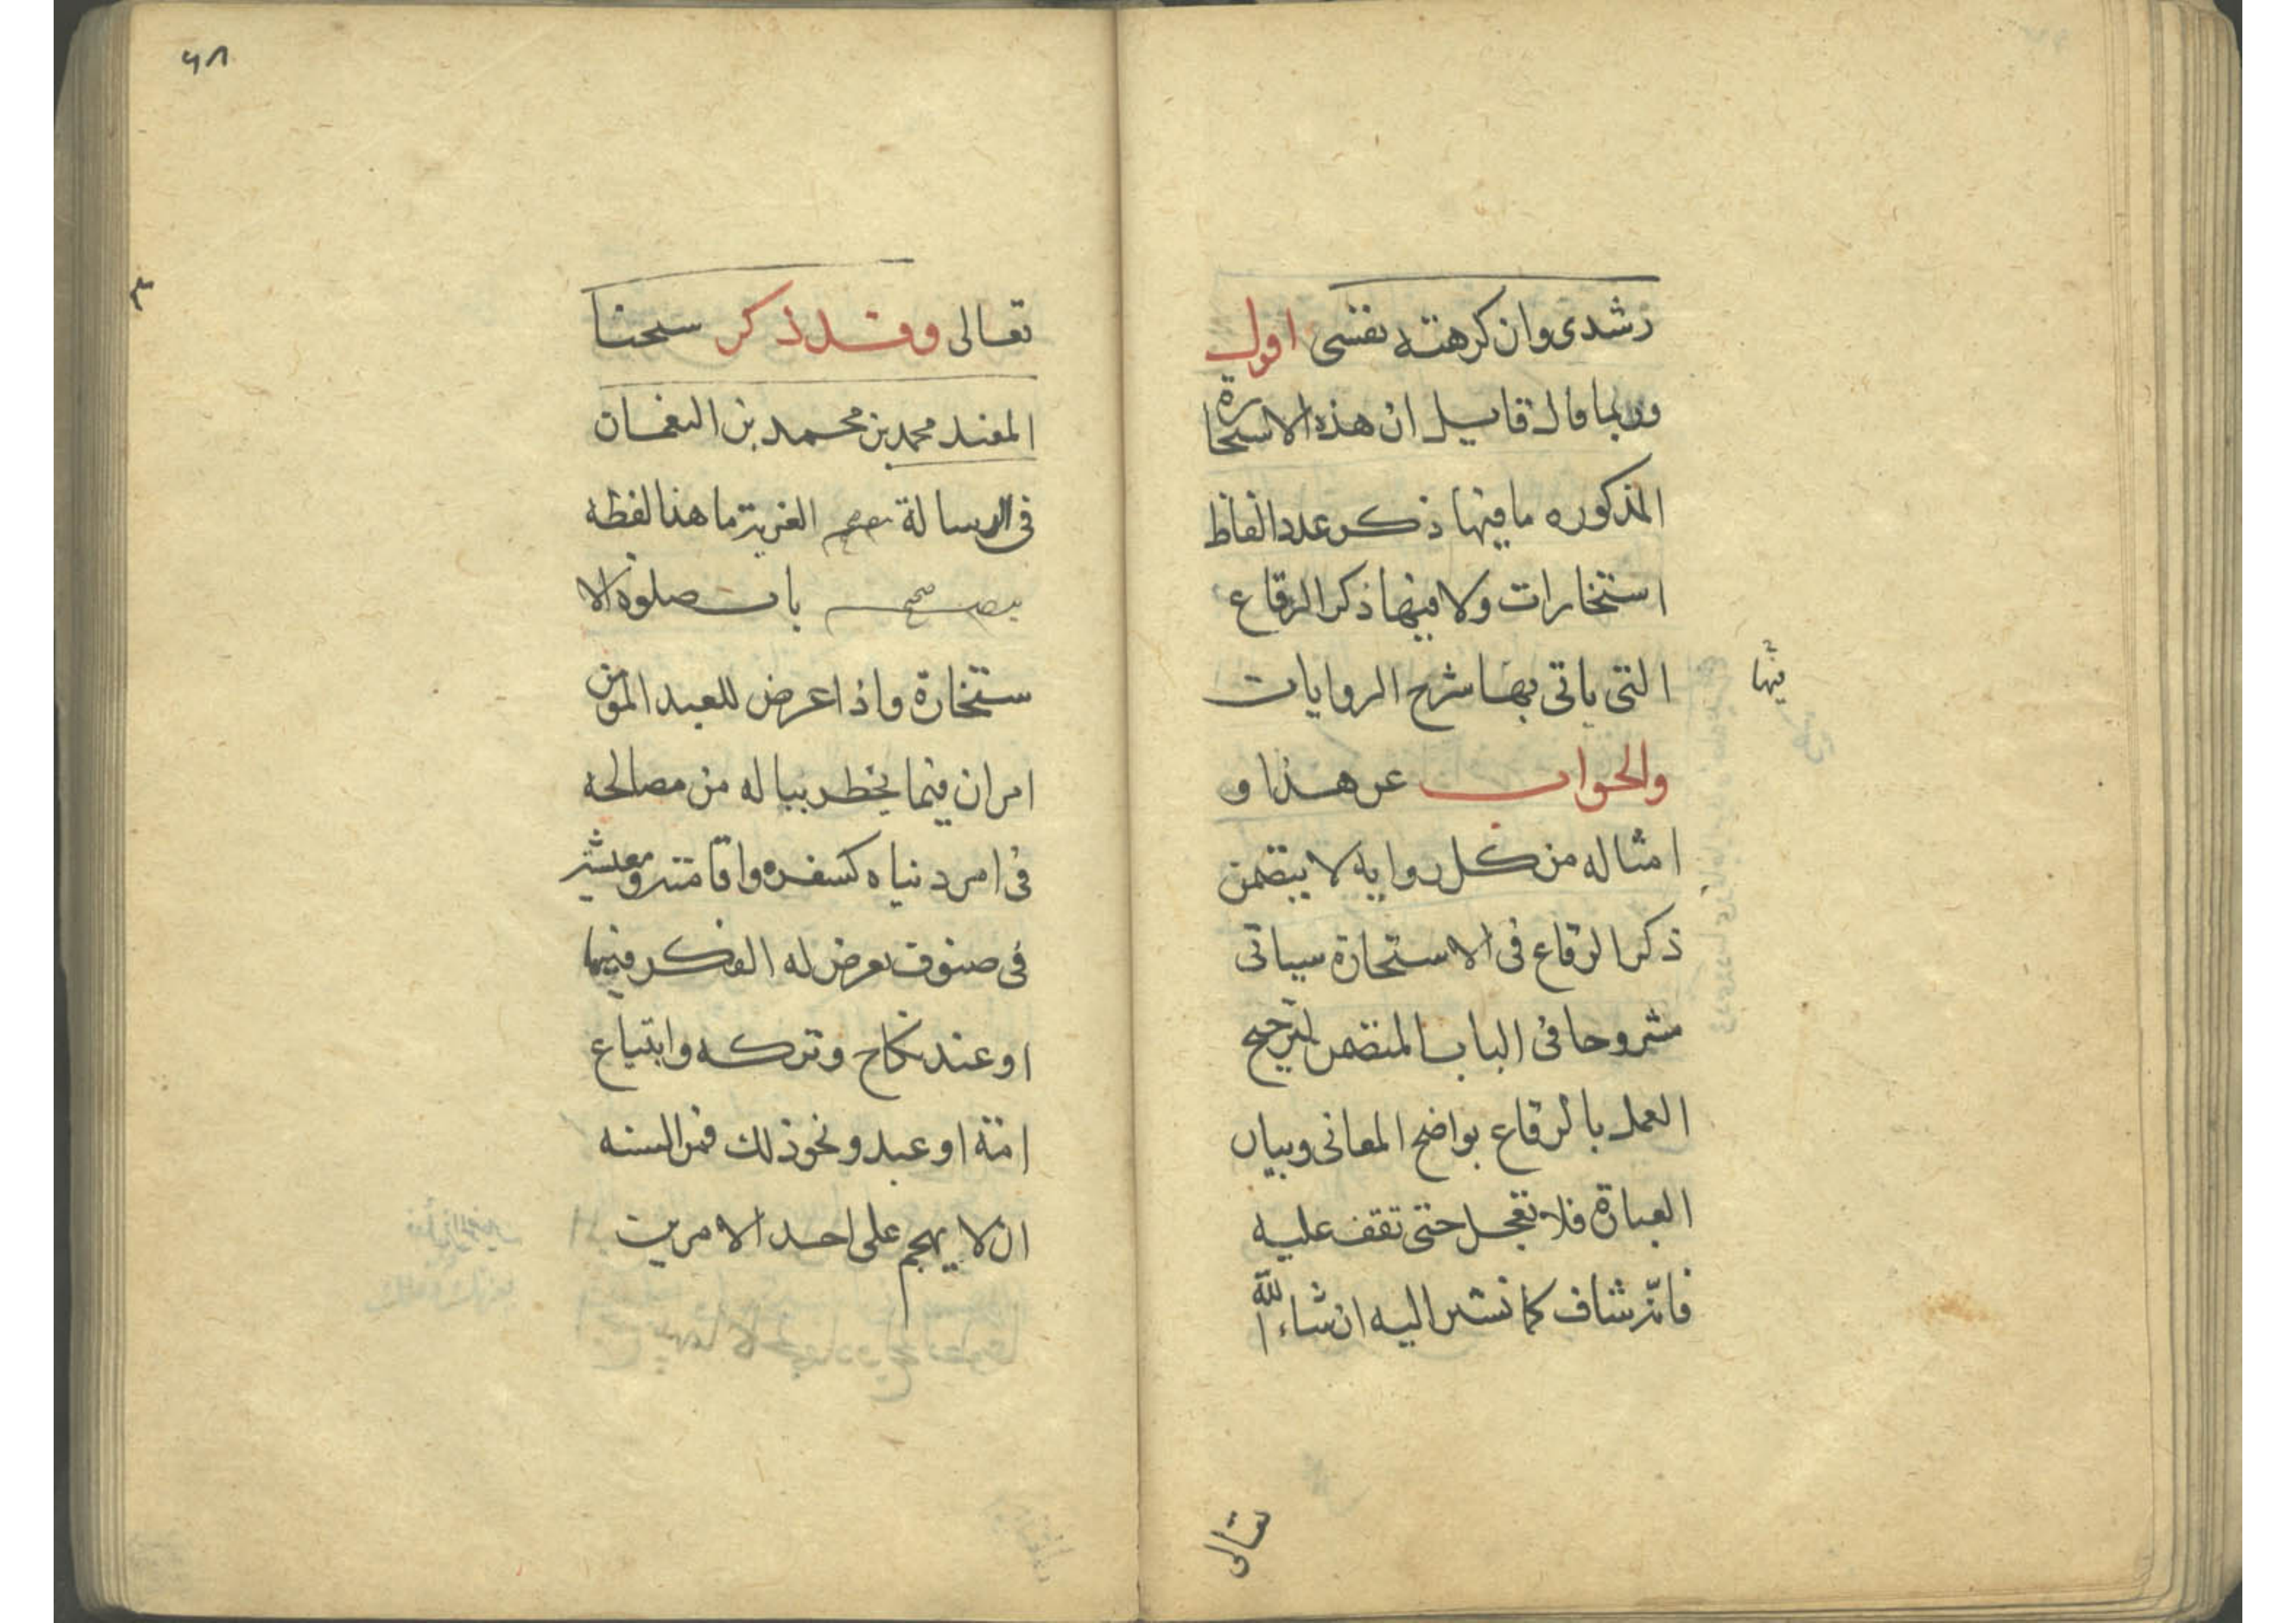 رشدى وان كرهته نفسى اقول
وربما قال قايل ان هذه الاستخارة
المذكوره ما فيها ذكر عدد الفاظ
استخارات ولا فيها ذكر الرقاع
التى ياتى بها شرح الروايات
فيها
والجواب عن هذا و
امثاله من كل روايه لا يتضمن
ذكر الرقاع فى الاستخارة سياتى
مشروحا فى الباب المتضمن لترجيح
العمل بالرقاع بواضح المعانى وبيان
العبارة فلا تعجل حتى تقف عليه
فانه شاف كما نشير اليه ان شاء الله
تعالى
٦٨
٣
تعالى وقد ذكر شيخنا
المفيد محمد بن محمد بن النعمان
فى الرسالة العزية ما هذا لفظه
باب صلوة الا
ستخارة واذا عرض للعبد المومن
امران فيما يخطر بباله من مصالحه
فى امر دنياه كسفره واقامته ومعيشته
فى صنوف يعرض له الفكر فيها
او عند نكاح وتركه وابتياع
امة او عبد ونحو ذلك فمن السنه
ان لا يهجم على احد الامرين